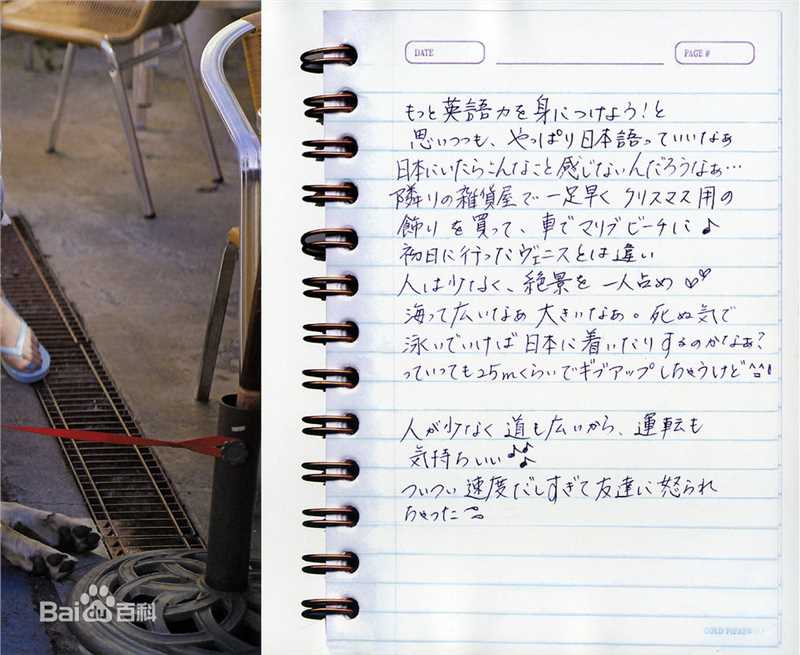 DATE
PAGE #
もっと英語力を身につけよう!と
思いつつも、やっぱり日本語っていいなぁ
日本にいたらこんなこと感じないんだろうなぁ…
隣りの雑貨屋で一足早く クリスマス用の
飾りを買って、車でマリブビーチに♪
初日に行ったヴェニスとは違い
人は少なく、絶景を一人占め♡♡
海って広いなぁ 大きいなぁ。死ぬ気で
泳いでいけば日本に着いたりするのかなぁ?
っていっても25mくらいでギブアップしちゃうけど^^!!
人が少なく 道も広いから、運転も
気持ちいい♪♪
ついつい速度だしすぎて友達に怒られ
ちゃった
Baidu百科